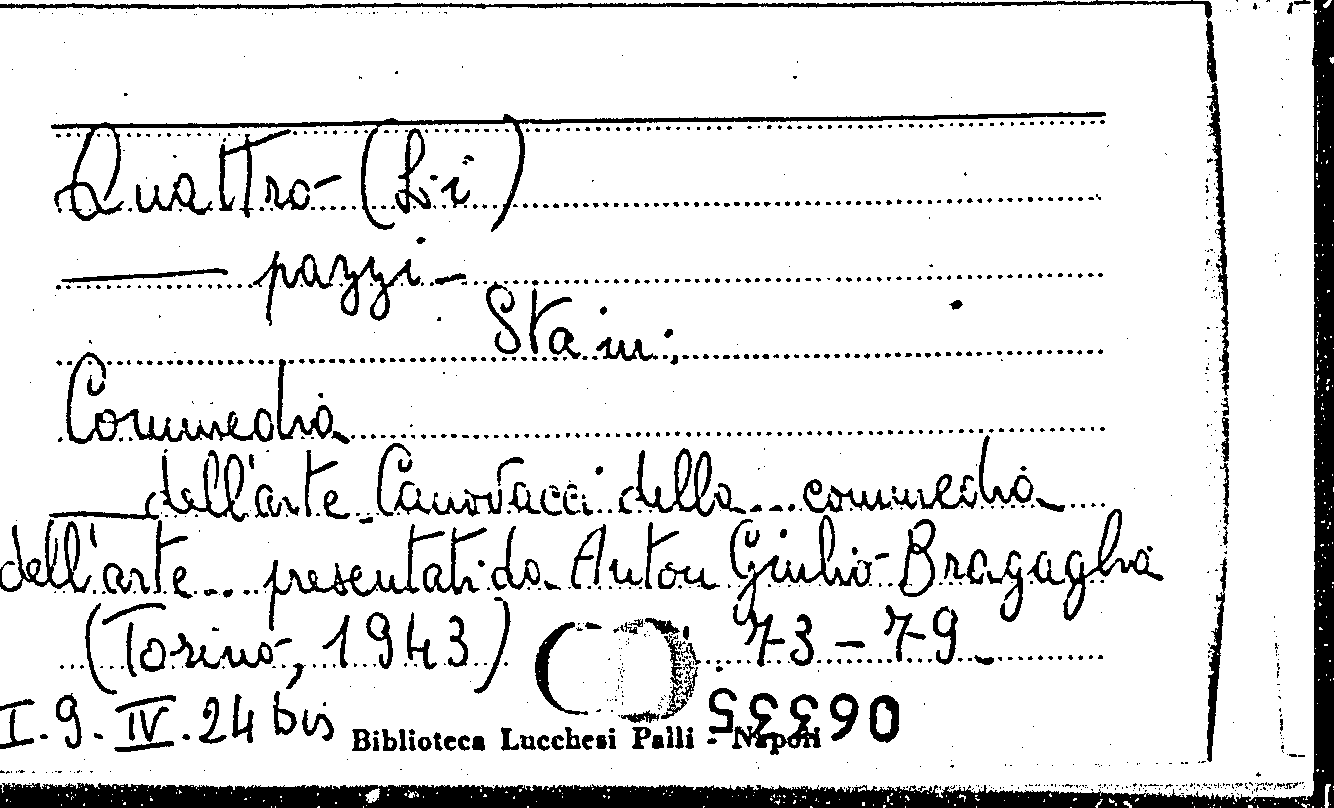 Quattro (Li)
—— pazzi -
Sta in:
Commedia
—— dell'arte Canovacci della ... commedia
dell'arte ... presentati da Anton Giulio Bragaglia
(Torino, 1943) . 73 - 79 -
I.9.IV.24 bis
Biblioteca Lucchesi Palli - Napoli
06335